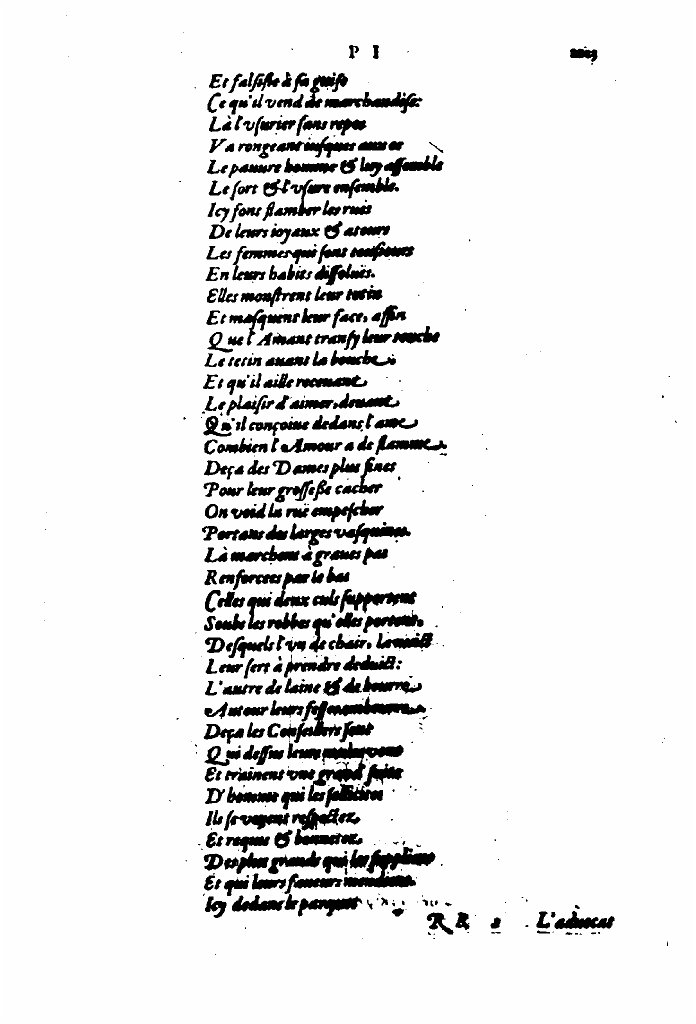 P I
Et falſifie à ſa guiſe
Ce qu'il vend de marchandiſe:
Là l'vſurier ſans repos
Va rongeant iuſques aux os
Le pauure homme & luy aſſemble
Le ſort & l'vſure enſemble.
Icy font flamber les rues
De leurs ioyaux & atours
Les femmes qui ſont touſiours
En leurs habits diſſolus.
Elles monſtrent leur tetin
Et maſquent leur face, affin
Que l'Amant tranſy leur touche
Le tetin auant la bouche
Et qu'il aille receuant
Le plaiſir d'aimer, deuant
Qu'il conçoiue dedans l'ame
Combien l'Amour a de flamme.
Deça des Dames plus fines
Pour leur groſſeſſe cacher
On void la rue empeſcher
Portans des larges vaſquines.
Là marchent à graues pas
Renforcees par le bas
Celles qui deux culs ſupportent
Soubs les robbes qu'elles portent,
Deſquels l'vn de chair, la nuict
Leur ſert à prendre deduict:
L'autre de laine & de bourre
Autour leurs feſſes
Deça les Conſeillers ſont
Qui deſſus leurs mules vont
Et trainent vne grand' ſuite
D'hommes qui les ſollicitent
Ils ſe voyent reſpectez,
Et requis & bonnetez,
Des plus grands qui les ſupplient
Et qui leurs faueurs mendient.
Icy dedans le parquet
RR 2 L'aduocat